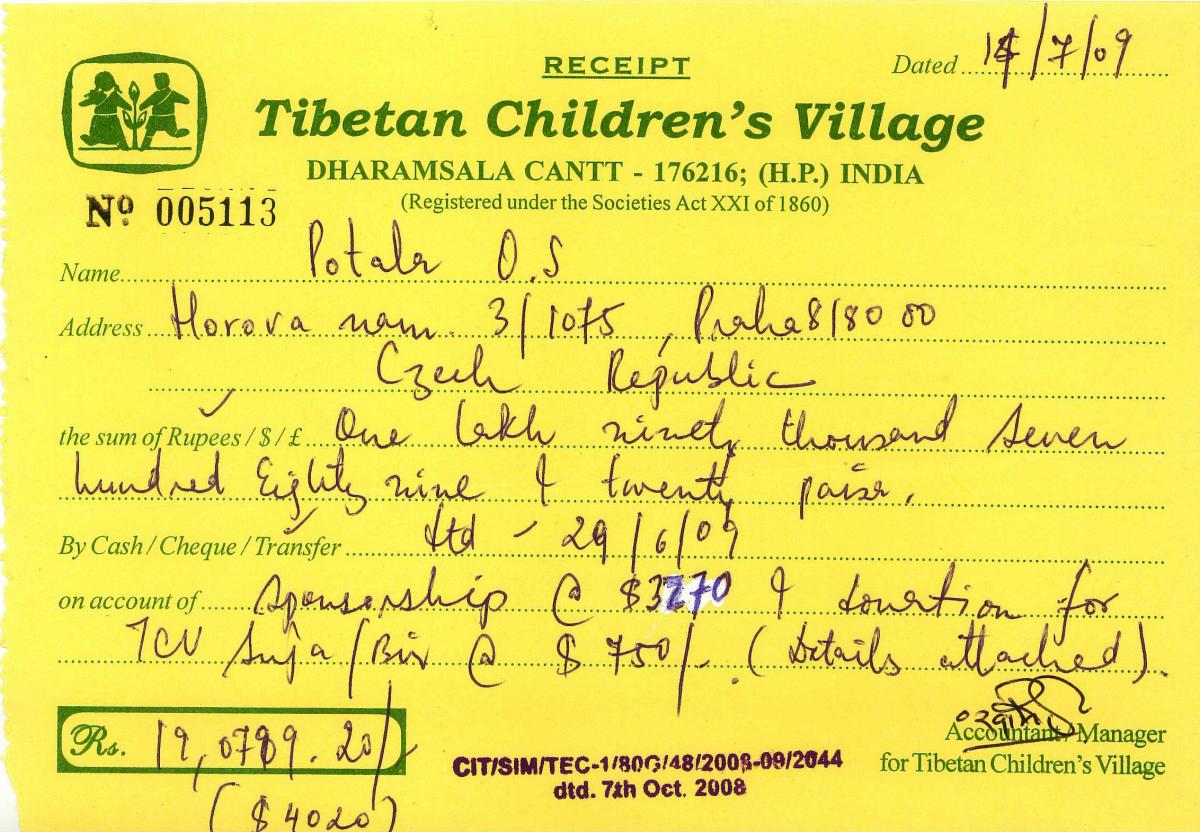 RECEIPT
Dated 14/7/09
Tibetan Children's Village
DHARAMSALA CANTT - 176216; (H.P.) INDIA
(Registered under the Societies Act XXI of 1860)
Nº 005113
Name Potala O.S
Address Horova nam. 3/1075, Praha 8/80 00
Czech Republic
the sum of Rupees / $ / £ One lakh ninety thousand Seven
hundred Eighty nine & twenty paisa.
By Cash / Cheque / Transfer dtd - 29/6/09
on account of Sponsorship @ $3270 & donation for
TCV Suja/Bir @ $ 750/-. (Details attached).
Rs. 19,0789.20/
($4020)
CIT/SIM/TEC-1/80G/48/2008-09/2044
dtd. 7th Oct. 2008
Accountant / Manager
for Tibetan Children's Village